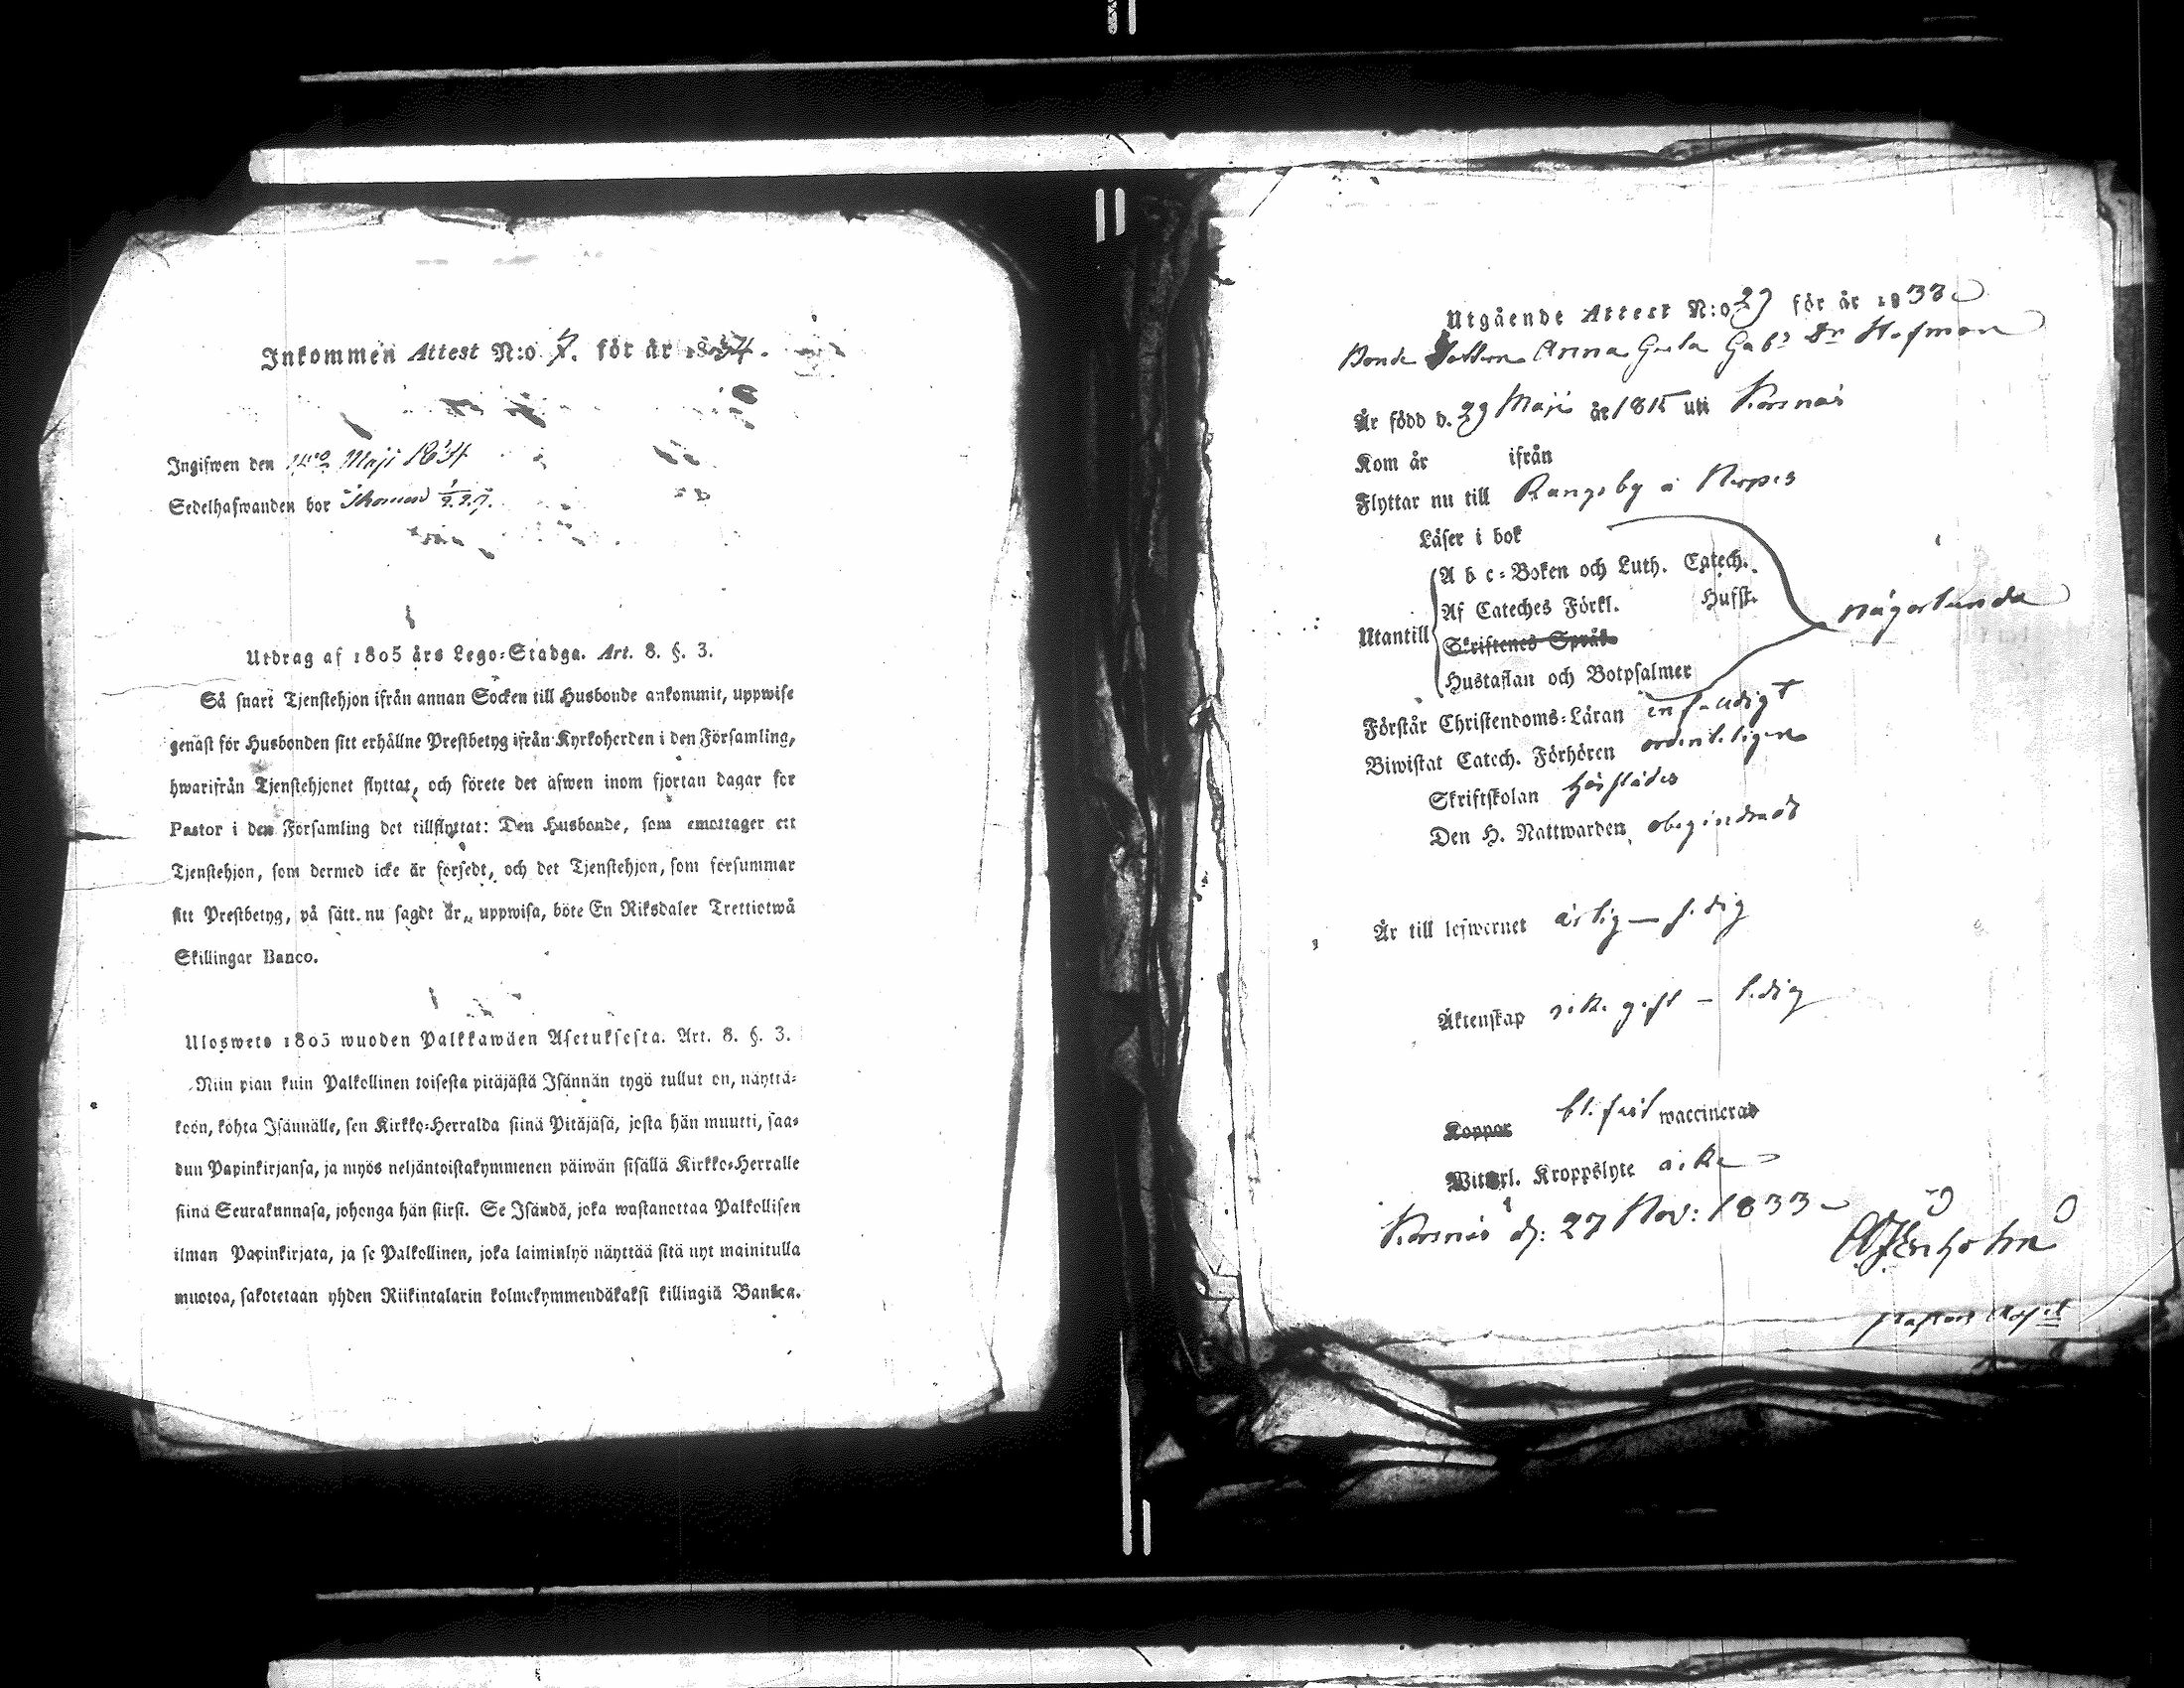 Inkommen Attest N:o 7. för år 1834.
Ingifwen den Maji 1834
Sedelhafwanden bor
Utdrag af 1805 års Lego-Stadga. Art. 8. §. 3.
Så snart Tjenstehjon ifrån annan Socken till Husbonde ankommit, uppwise
genast för Husbonden sitt erhållne Prestbetyg ifrån Kyrkoherden i den Församling,
hwarifrån Tjenstehjonet flyttat, och förete det äfwen inom fjortan dagar for
Pastor i den Forsamling det tillflyttat: Den Husbonde, som emottager ett
Tjenstehjon, som dermed icke är försedt, och det Tjenstehjon, som försummar
sitt Prestbetyg, på sätt nu sagdt är, uppwisa, böte En Riksdaler Trettiotwå
Skillingar Banco.
Uloswetv 1805 wuoden Palkkawäen Asetuksesta. Art. 8. §. 3.
Niin pian kuin Palkollinen toisesta pitäjästä Isännän tygö tullut on, näyttä-
köön, kohta Isännälle, sen Kirkko-Herralda siinä Pitäjäsä, josta hän muutti, saa-
dun Papinkirjansa, ja myös neljäntoistakymmenen päiwän sisällä Kirkko-Herralle
siinä Seurakunnasa, johonga hän siirsi. Se Isändä, joka wastanottaa Palkollisen
ilman Papinkirjata, ja se Palkollinen, joka laiminlyö näyttää sitä nyt mainitulla
muotoa, sakotetaan yhden Riikintalarin kolmekymmendäkaksi killingiä Bankca.
Utgående Attest N:o 29 för år 1833
Bonde Dottern Anna Greta Gabs Dr Hofman
Är född d. 29 Maji år 1815 uti Korsnäs
Kom år ifrån
Flyttar nu till Rangsby i Nerpes
Läser i bok
A b c-Boken och Luth. Catech.
Af Cateches Förkl. Hufst.
Utantill Skriftenes Språk någorlunda
Hustaflan och Botpsalmer
Förstår Christendoms-Läran enfaldigt
Biwistat Catech. Förhören ordentligen
Skriftskolan härstädes
Den H. Nattwarden obehindrad
Är till lefwernet ärlig — sedig
Äktenskap icke gift – ledig
Koppor blifwit waccinerad
Witterl. Kroppslyte icke
Korsnäs d: 27 Nov: 1833
Pastors